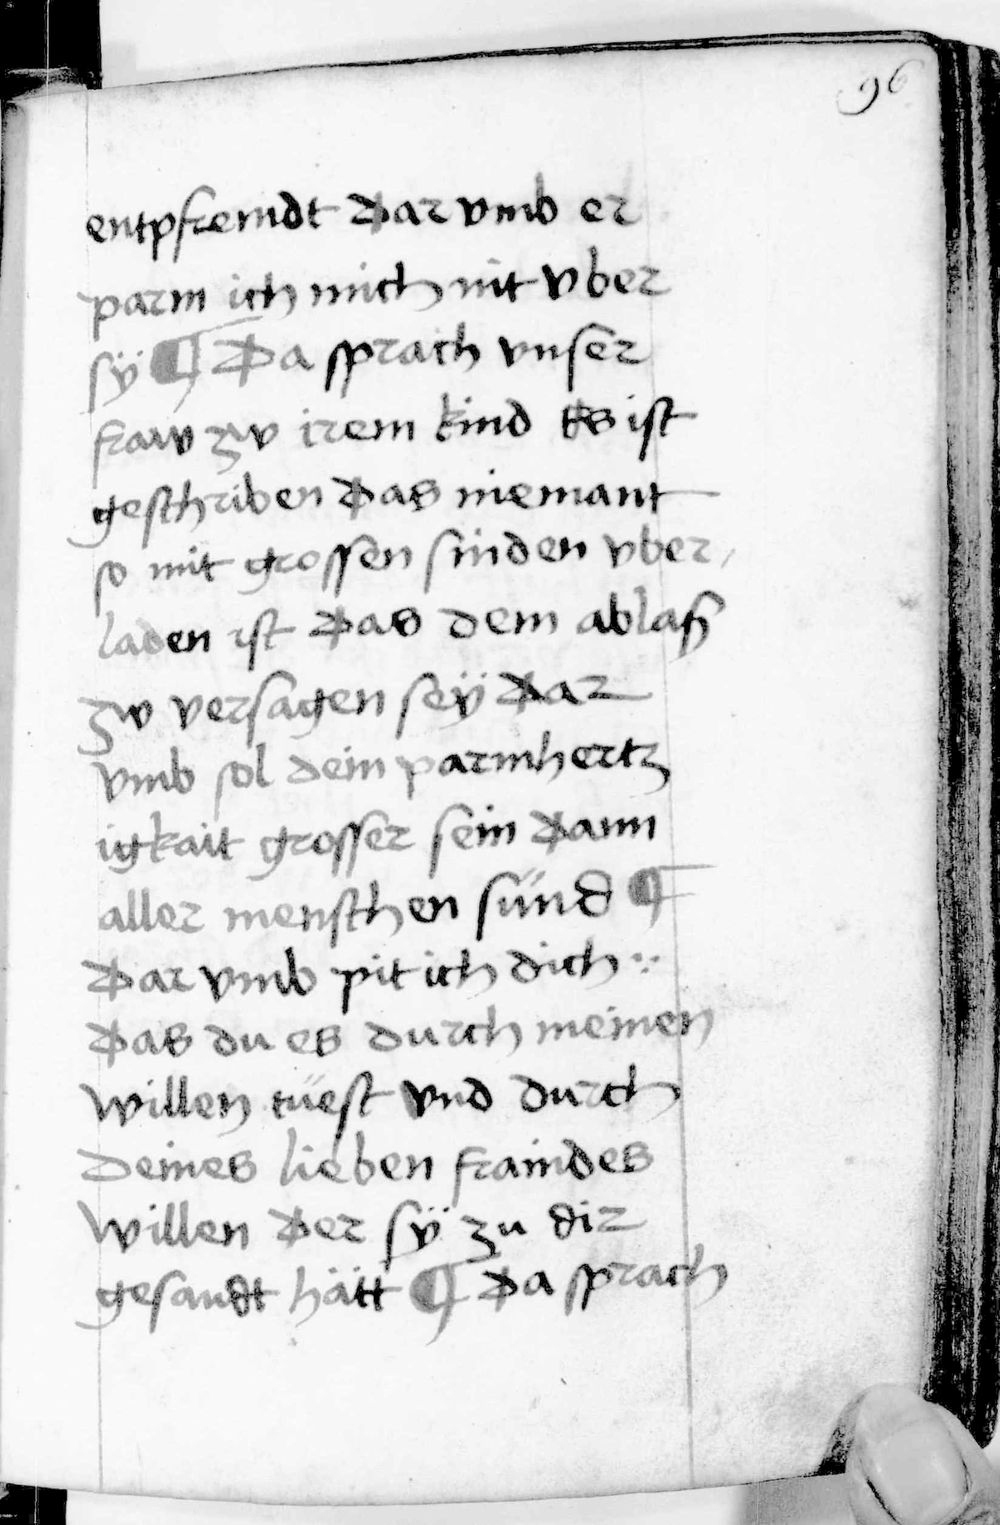 96
entpfremdt Dar vmb er
parm ich mich nit vber
sÿ ¶ Da sprach vnser
fraw zw irem kind Es ist
geschriben Das niemant
so mit grossen sinden vber
laden ist Das dem ablaß
zw versagen seÿ Dar
vmb sol dein parmhertz
igkait grosser sein Dann
aller menschen sünd ¶
Dar vmb pit ich dich
Das du es durch meinen
willen tüest vnd durch
deines lieben fraindes
willen Der sÿ zu dir
gesandt hätt ¶ Da sprach